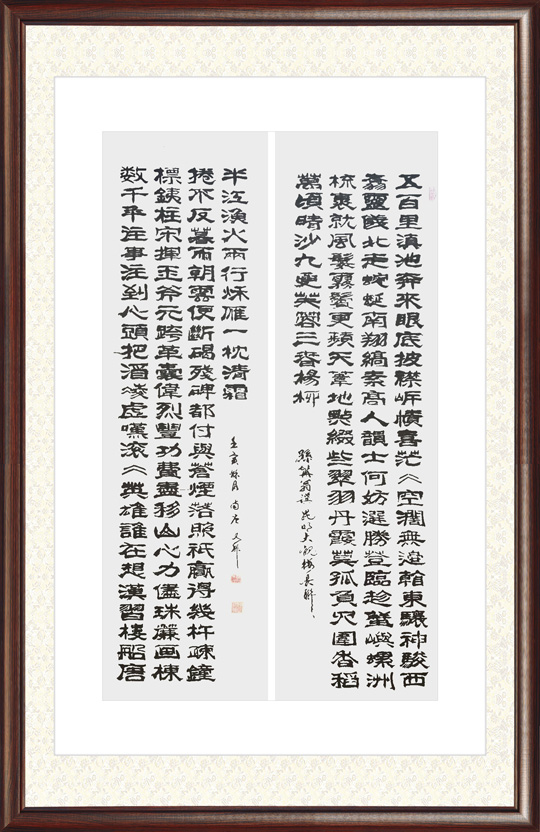 五百里滇池奔來眼底披襟岸幘喜茫〻空闊無邊看東驤神駿西
翥靈儀北走蜿蜒南翔縞素高人韻士何妨選勝登臨趁蟹嶼螺洲
梳裹就風鬟霧鬢更蘋天葦地點綴些翠羽丹霞莫孤負四圍香稻
萬頃晴沙九夏芙蓉三春楊柳
孫髯翁撰昆明大觀樓長聯
数千年往事注到心頭把酒凌虛嘆滾〻英雄誰在想漢習樓船唐
標鐵柱宋揮玉斧元跨革囊偉烈豐功費盡移山心力儘珠簾画棟
捲不及暮雨朝雲便斷碣殘碑都付與蒼煙落照祇贏得幾杵疎鐘
半江漁火兩行秋雁一枕清霜
壬寅秋月